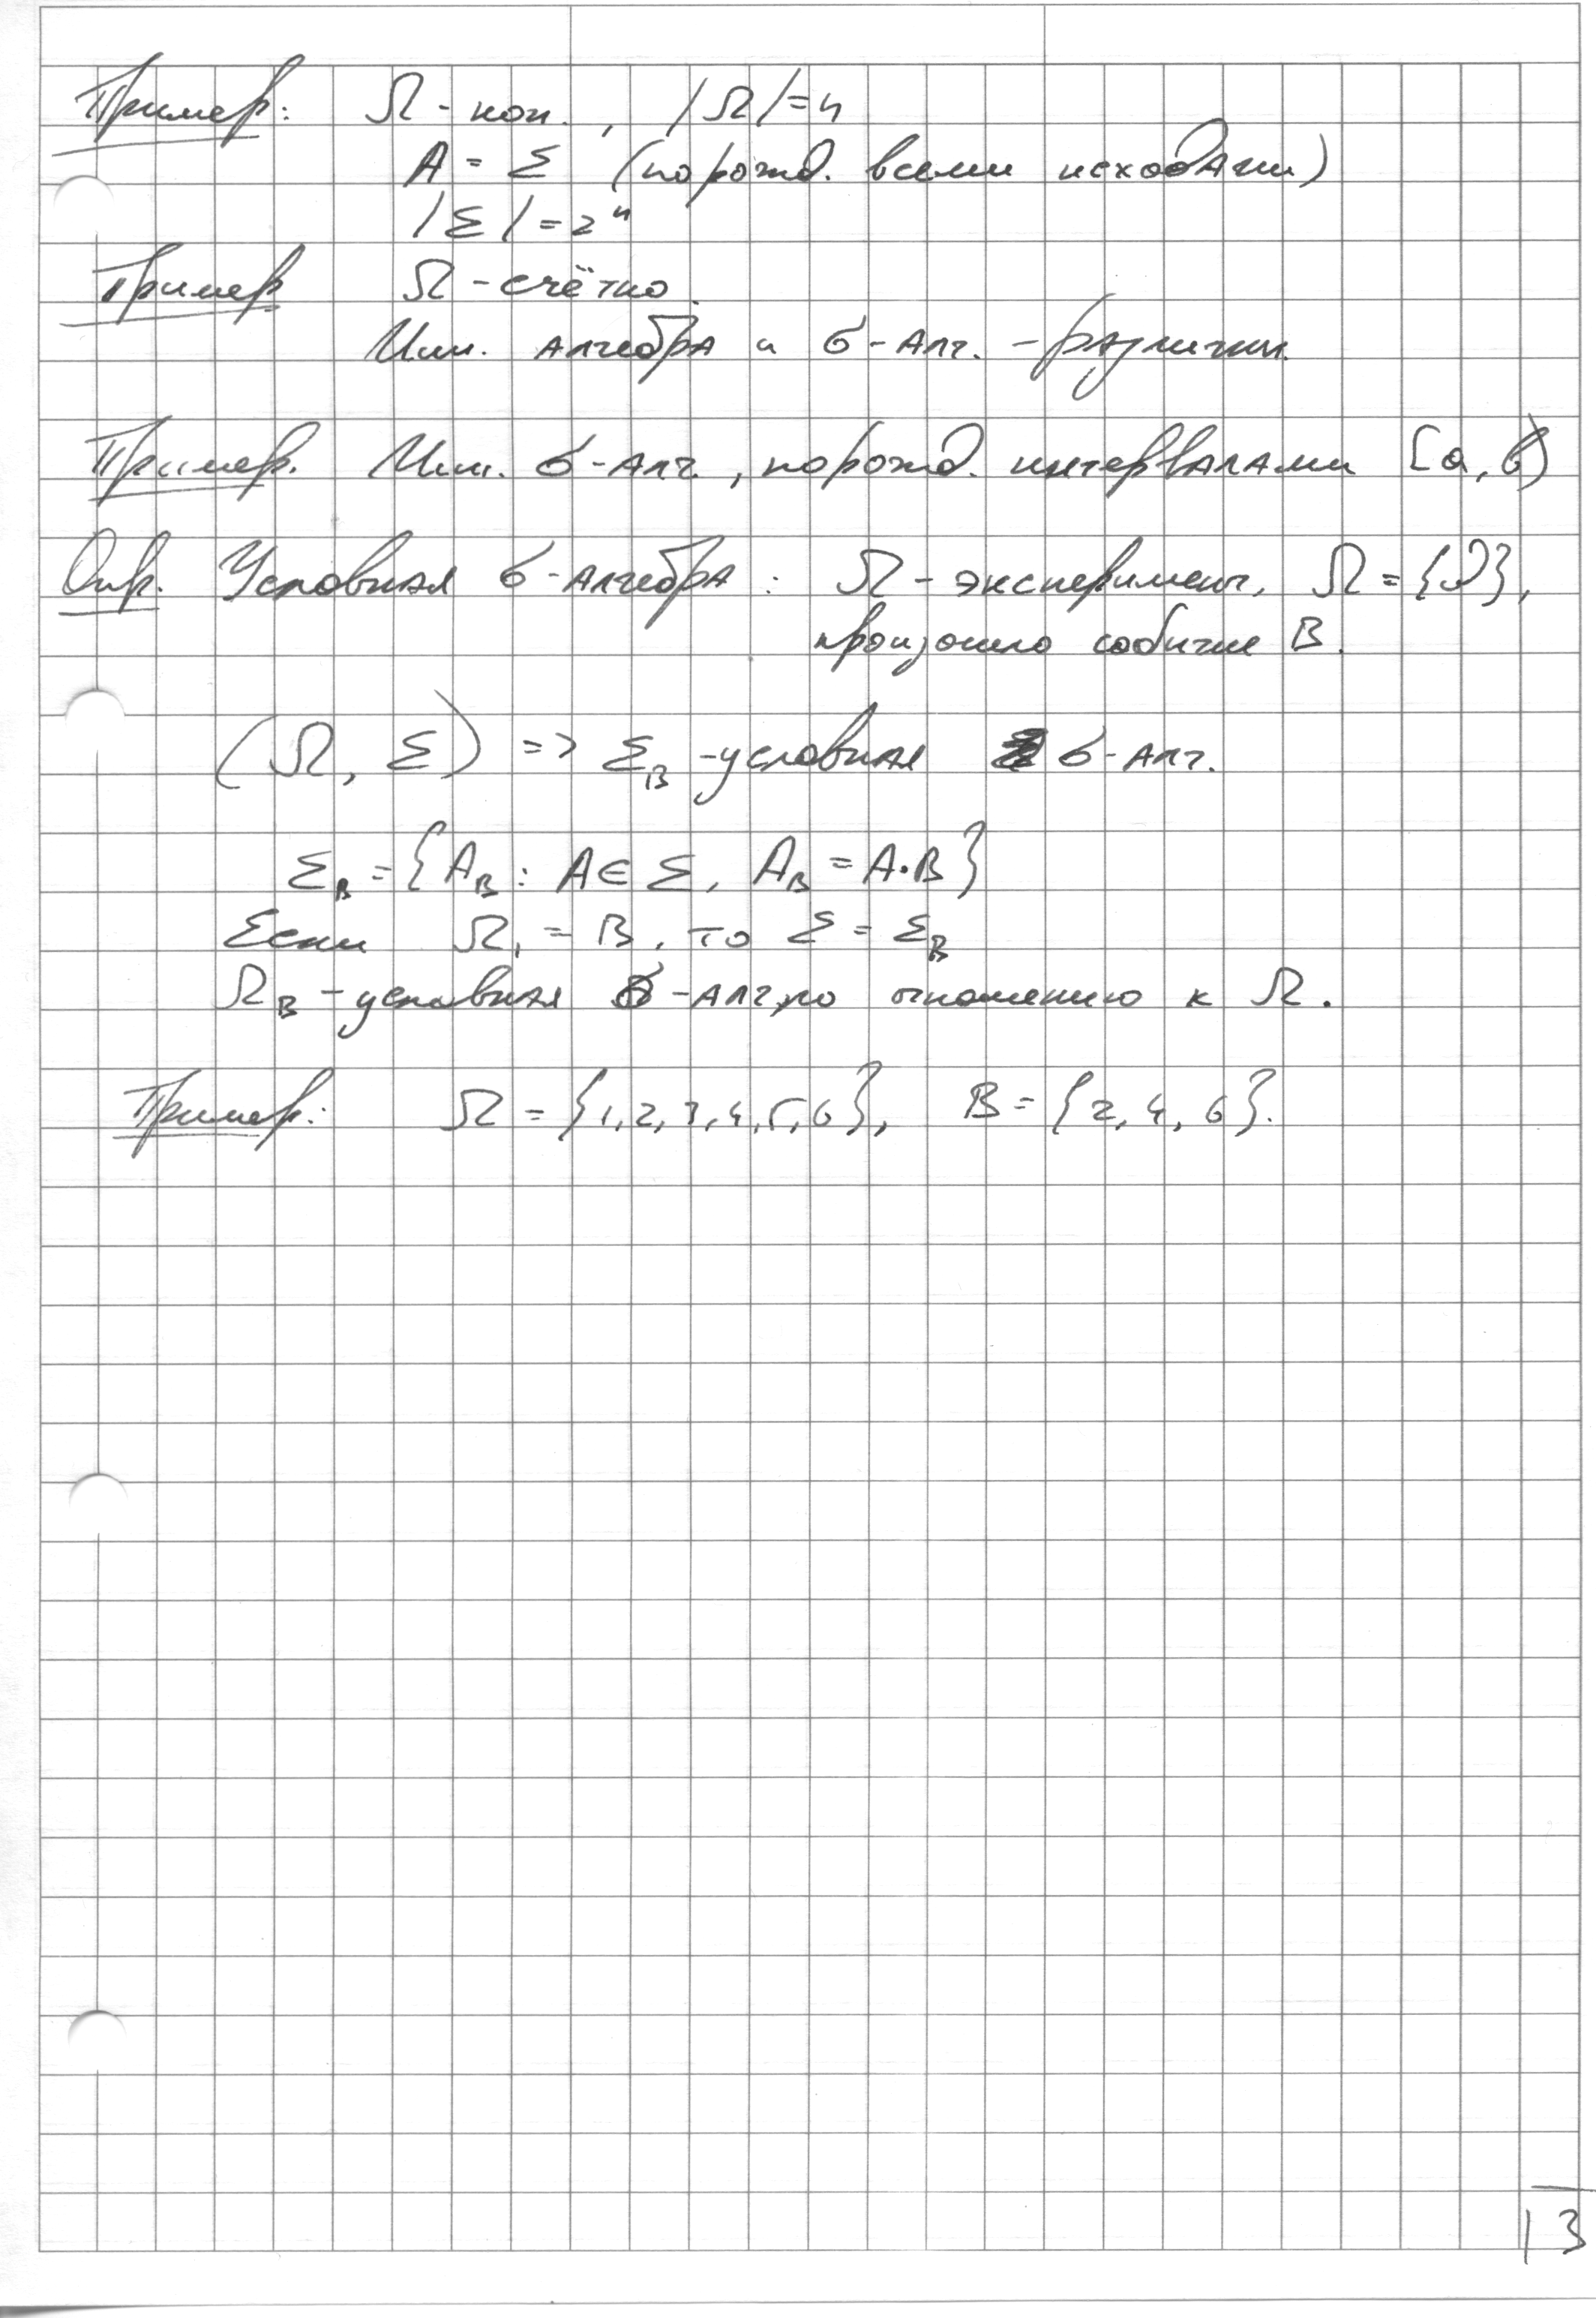 Пример: Ω - кон., |Ω| = n
A = Σ (порожд. всеми исходами)
|Σ| = 2ⁿ
Пример Ω - счётно.
Мин. алгебра и σ-алг. - различны.
Пример. Мин. σ-алг., порожд. интервалами [a, b)
Опр. Условная σ-алгебра: Ω - эксперимент, Ω = {ω},
произошло событие B.
(Ω, Σ) => Σ_B - условная σ-алг.
Σ_B = {A_B : A ∈ Σ, A_B = A·B}
Если Ω₁ = B, то Σ = Σ_B
Ω_B - условная σ-алг. по отношению к Ω.
Пример: Ω = {1, 2, 3, 4, 5, 6}, B = {2, 4, 6}.
13